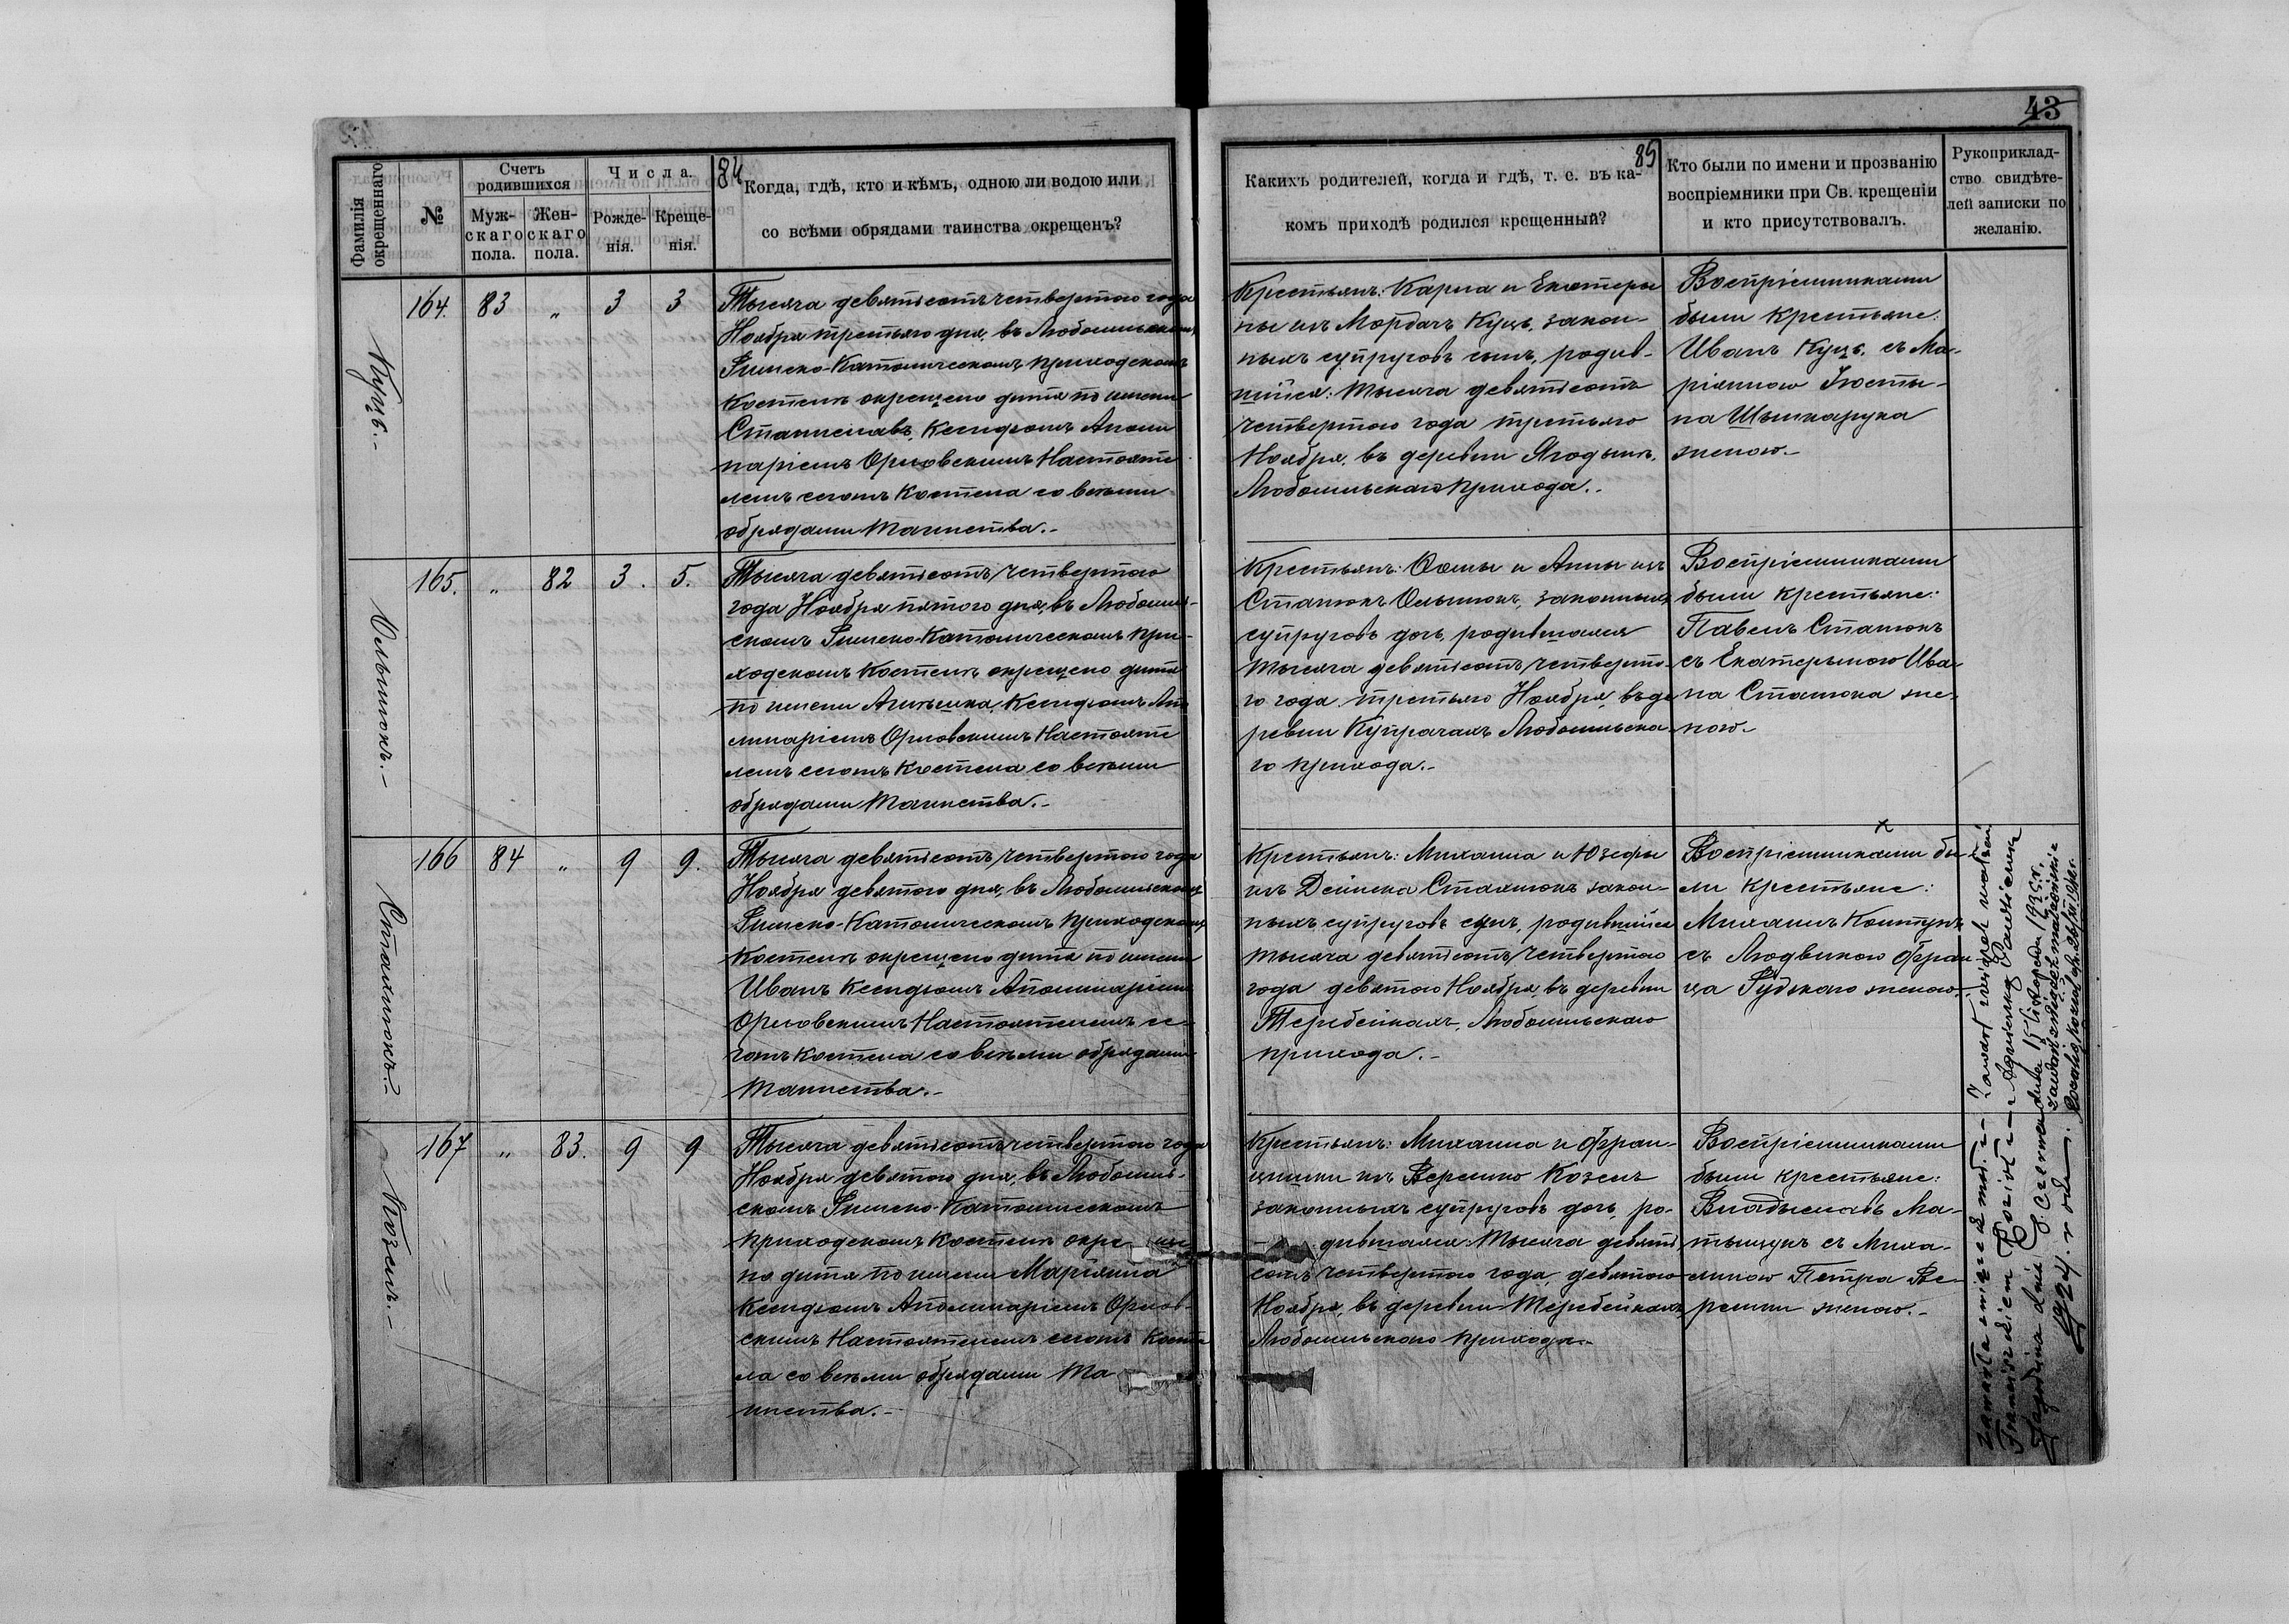 43
84
85
Фамилія окрещеннаго
№
Счетъ родившихся
Муж-
скаго
пола.
Жен-
скаго
пола.
Числа.
Рожде-
нія.
Креще-
нія.
Когда, гдѣ, кто и кѣмъ, одною ли водою или
со всѣми обрядами таинства окрещенъ?
Какихъ родителей, когда и гдѣ, т. е. въ ка-
комъ приходѣ родился крещенный?
Кто были по имени и прозванію
воспріемники при Св. крещеніи
и кто присутствовалъ.
Рукоприклад-
ство свидѣте-
лей записки по
желанію.
Куцъ.-
164. 83 " 3 3
Тысяча девятьсотъ четвертого года
Ноября третьяго дня, въ Любомльскомъ
Римско-Католическомъ приходскомъ
Костелѣ окрещено дитя по имени
Станиславъ, Ксендзомъ Аполи
наріемъ Орловскимъ Настояте
лемъ сегожъ Костела со всѣми
обрядами Таинства.-
Крестьянъ: Карла и Екатеры
ны изъ Мордачъ Куцъ, закон-
ныхъ супруговъ сынъ, родив-
шійся: тысяча девятьсотъ
четвертого года третьяго
Ноября, въ деревни Ягодынѣ,
Любомльскаго прихода.-
Воспріемниками
были крестьяне:
Иванъ Куцъ, съ Ма-
ріянною Юсты-
на Шышкарука
женою.-
Ольшюкъ.-
165. " 82 3. 5.
Тысяча девятьсотъ четвертого
года Ноября пятого дня, въ Любомль-
скомъ Римско-Католическомъ при-
ходскомъ Костелѣ окрещено дитя
по имени Агнѣшка, Ксендзомъ Апо
линаріемъ Орловскимъ Настояте
лемъ сегожъ Костела со всѣми
обрядами Таинства.-
Крестьянъ: Ѳомы и Анны изъ
Стасюкъ Ольшюкъ, законныхъ
супруговъ дочь, родившаяся
тысяча девятьсотъ четверто
го года третьяго Ноября, въ де
ревни Купрачахъ Любомльска-
го прихода.-
Воспріемниками
были крестьяне:
Павелъ Стасюкъ
съ Екатерыною Ива-
на Стасюка же-
ною.-
Стахнюкъ.-
166 84 " 9 9.
Тысяча девятьсотъ четвертого года
Ноября девятого дня, въ Любомльскомъ
Римско-Католическомъ Приходскомъ
Костелѣ окрещено дитя по имени
Иванъ Ксендзомъ Аполинаріемъ
Орловскимъ Настоятелемъ се-
гожъ Костела со всѣми обрядами
Таинства.-
Крестьянъ: Михаила и Юзефы
изъ Дейнека Стахнюкъ закон-
ныхъ супруговъ сынъ, родившійся
тысяча девятьсотъ четвертого
года девятого Ноября, въ деревни
Теребейкахъ, Любомльскаго
прихода.-
Воспріемниками бы-
ли крестьяне:
Михаилъ Ковтунъ
съ Людвикою Фран-
ца Рудзкаго женою.
Козелъ.-
167 " 83. 9 9
Тысяча девятьсотъ четвертого года
Ноября девятого дня, въ Любомль-
скомъ Римско-Католическомъ
приходскомъ Костелѣ окре ще
но дитя по имени Маріянна
Ксендзомъ Аполинаріемъ Орлов-
скимъ Настоятелемъ сегожъ Косте
ла со всѣми обрядами Та
инства.-
Крестьянъ: Михаила и Фран-
цишки изъ Веремко Козелъ
законныхъ супруговъ дочь, ро-
дившаяся: тысяча девять
сотъ четвертого года, девятого
Ноября, въ деревни Теребейкахъ,
Любомльскаго прихода.-
Воспріемниками
были крестьяне:
Владыславъ Ма-
тыщукъ съ Миха-
линою Петра Ве-
ремки женою.-
zawarł związek małżeń
Franciszkiem Kozioł
1924. roku